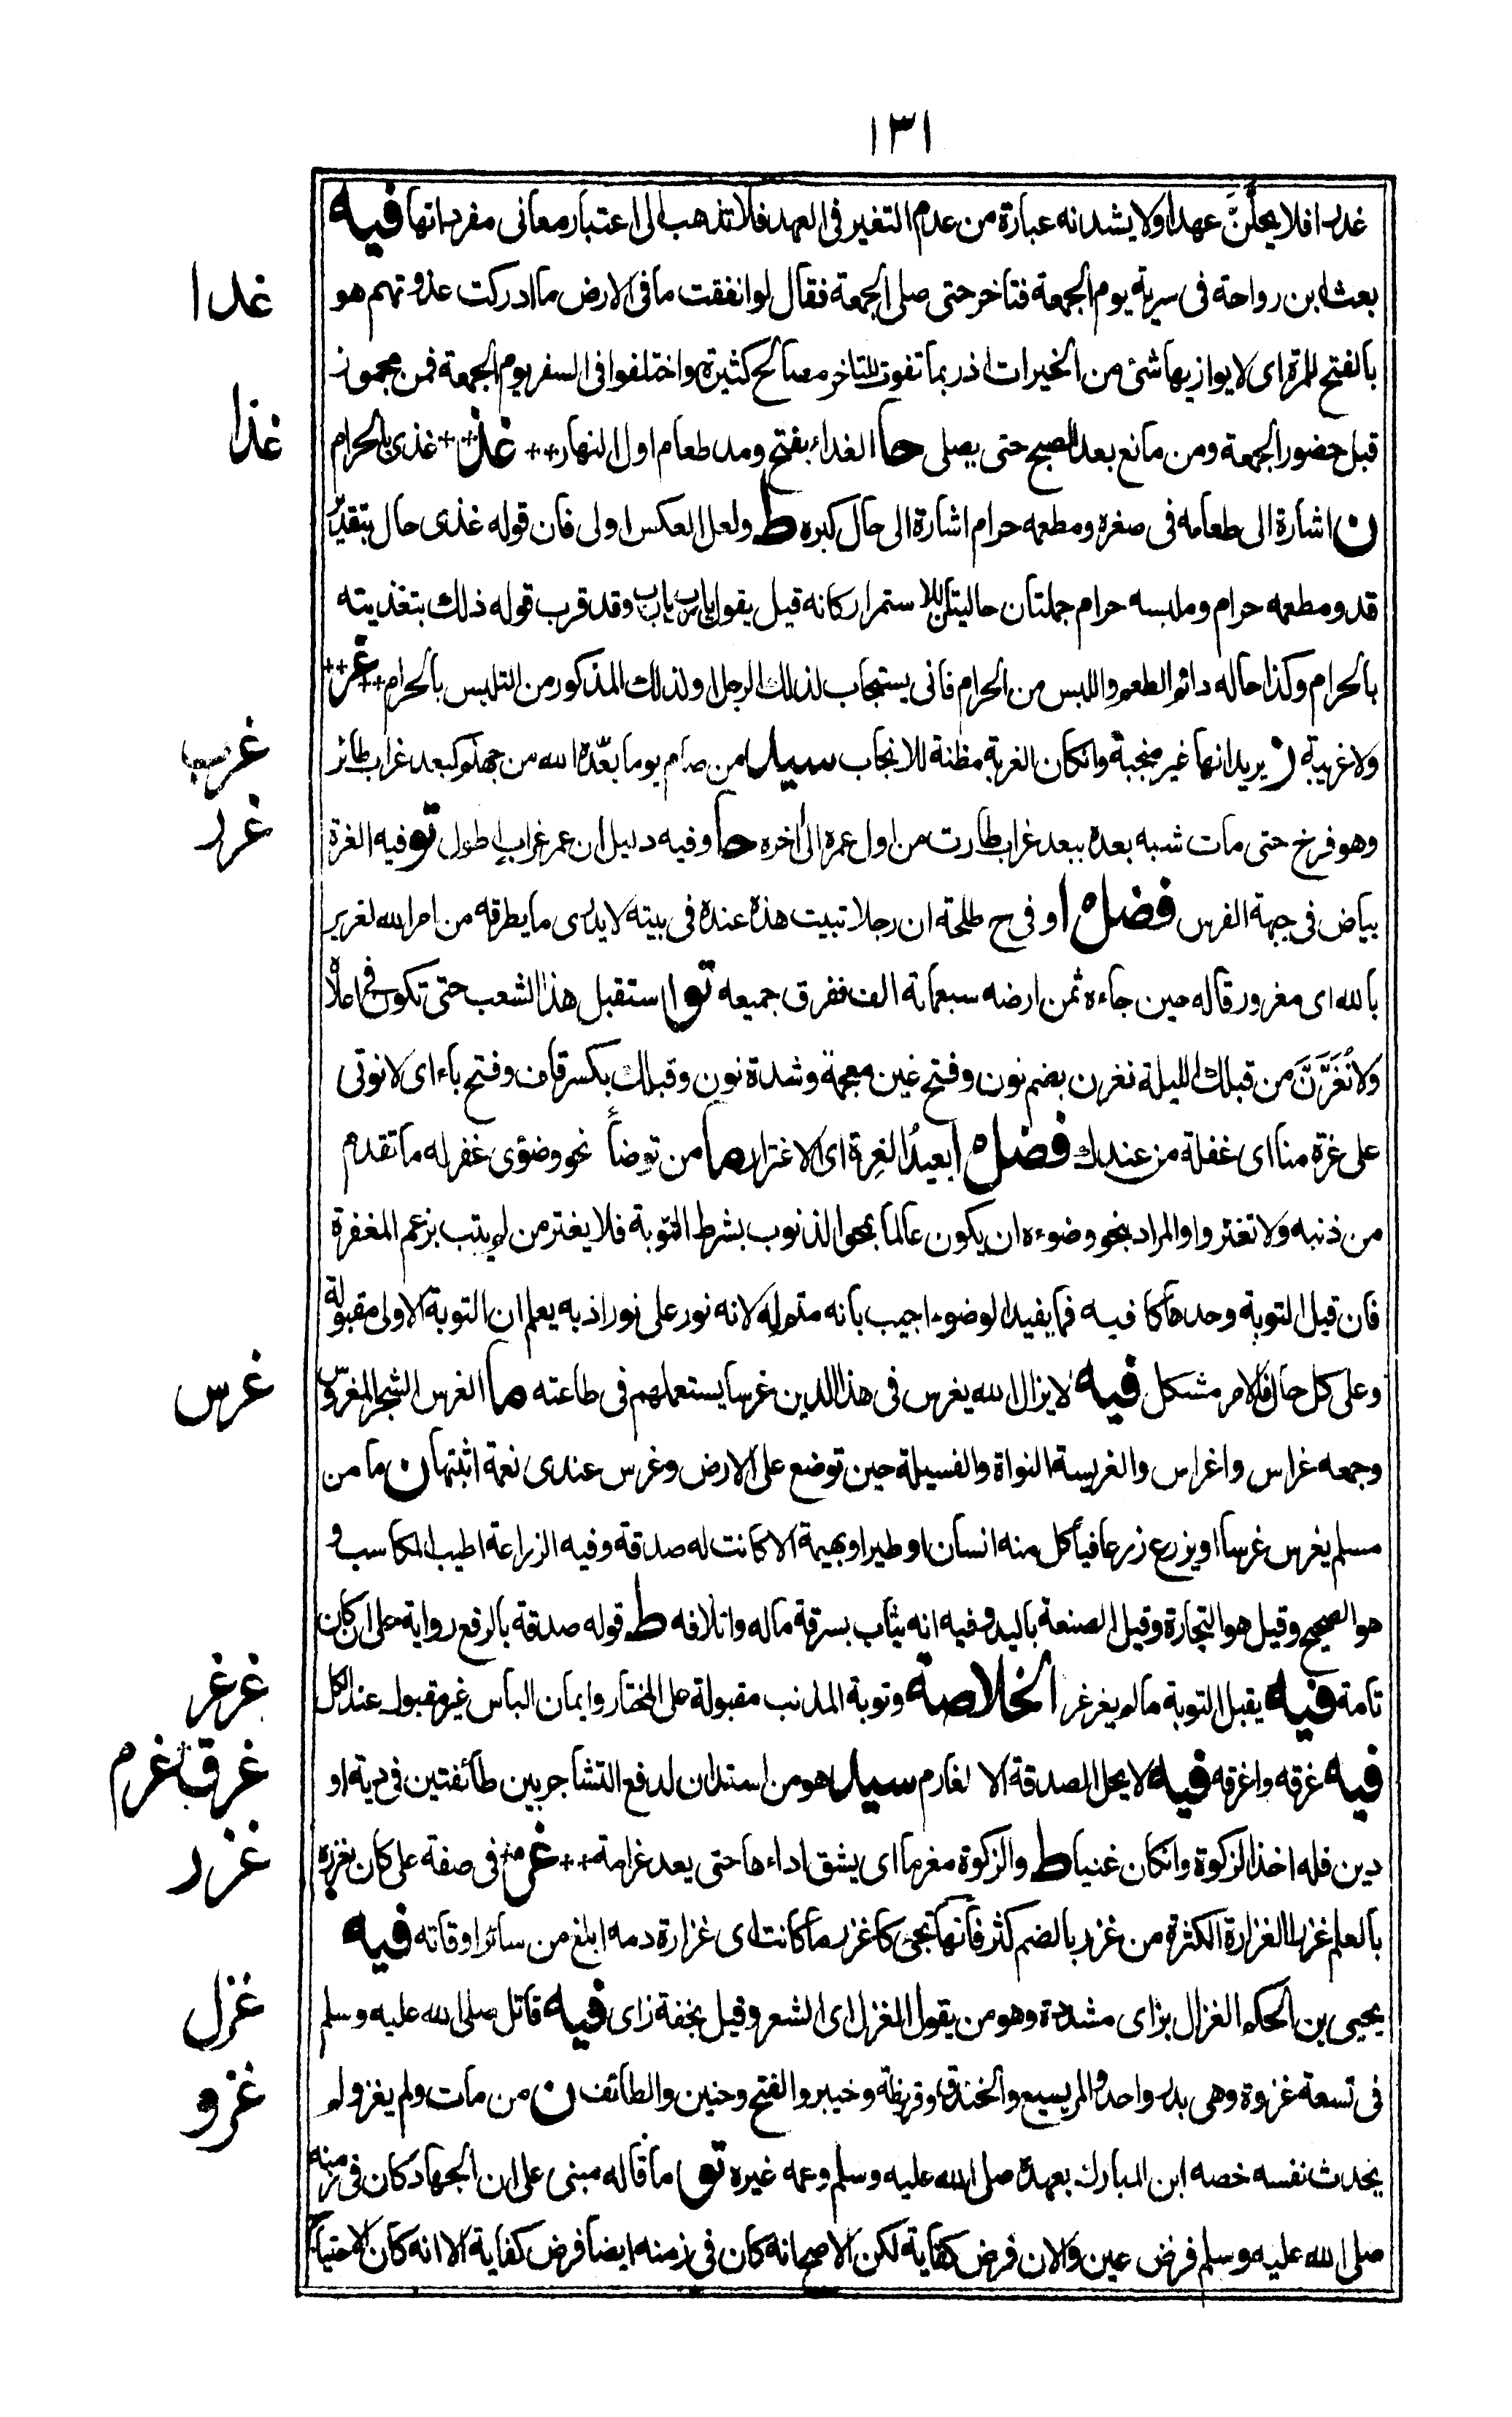 ١٣١
غدرا فلا يحلّنّ عهدا ولا يشدنه عبارة من عدم التغير في العهد فلا تذهب الى اعتبار معانى مفرداتها فيه
غدا
بعث ابن رواحة فى سرية يوم الجمعة فتاخر حتى صلى الجمعة فقال لو انفقت ما فى الارض ما ادركت غدوتهم هو
بالفتح للمرة اى لا يوازيها شئ من الخيرات اذ ربما تفوت للتاخر مصالح كثيرة واختلفوا فى السفر يوم الجمعة فمن مجوز
غذا
قبل حضور الجمعة ومن مانع بعد الصبح حتى يصلى حا الغداء بفتح ومد طعام اول النهار ++ غذ ++ غذى بالحرام
ن اشارة الى طعامه فى صغره ومطعمه حرام اشارة الى حال كبره ط ولعل العكس اولى فان قوله غذى حال بتقدير
قد ومطعمه حرام وملبسه حرام جملتان حاليتان للاستمرار كانه قيل يقول يارب يارب وقد قرب قوله ذلك بتغذيته
بالحرام وكذا حاله دائم الطعم واللبس من الحرام فانى يستجاب لذلك الرجل او لذلك المذكور من التلبس بالحرام ++ غر ++
غرب
ولا غريبة ز يريد انها غير منجبة وانكان الغربة مظنة للانجاب سيد من صام يوما بعّده الله من جهنم كبعد غراب طائر
غرر
وهو فرخ حتى مات شبه بعده ببعد غراب طارت من اول عمره الى أخره حا وفيه دليل ان عمر غراب اطول تو فيه الغرة
بياض فى جبهة الفرس فضل ه او فى ح طلحة ان رجلا تبيت هذه عنده فى بيته لا يدرى ما يطرقه من امر الله لغرير
بالله اى مغرور قاله حين جاءه ثمن ارضه سبعماتة الف ففرق جميعه تو استقبل هذا الشعب حتى تكون فى اعلاه
ولا نُغَرَّنَّ من قبلك الليلة نغرن بضم نون وفتح غين معجمة وشدة نون وقبلك بكسر قاف وفتح باء اى لا نوتى
على غرة منا اى غفلة من عندك فضل ه ابعيدُ الغِرة اى الاغترار ما من توضأ نحو وضوئى غفر له ما تقدم
من ذنبه ولا تغتروا والمراد بنحو وضوءه ان يكون عالما بمحو الذنوب بشرط التوبة فلا يغتر من لم يتب بزعم المغفرة
فان قيل التوبة وحدها كافيه فما يفيد الوضوء اجيب بانه متمم له لانه نور على نور اذ به يعلم ان التوبة الاولى مقبولة
غرس
وعلى كل حال فالامر مشكل فيه لا يزال الله يغرس فى هذا الدين غرسا يستعملهم فى طاعته ما الغرس الشجر المغروس
وجمعه غراس واغراس والغريسة النواة والفسيلة حين توضع على الارض وغرس عندى نعمة اثبتها ن ما من
مسلم يغرس غرسا او يزرع زرعا فيأكل منه انسان او طير او بهيمة الا كانت له صدقة وفيه الزراعة اطيب المكاسب و
هو الصحيح وقيل هو التجارة وقيل الصنعة باليد وفيه انه يثاب بسرقة ماله واتلافه ط قوله صدقة بالرفع رواية على ان كان
غرغر
تامة فيه يقبل التوبة مالم يغرغر الخلاصة وتوبة المذنب مقبولة على المختار وايمان الباس غير مقبول عند الكل
غرق غرم
فيه غرقه واغرقه فيه لا يحل الصدقة الا لغارم سيد هو من استدان لدفع التشاجر بين طائفتين فى دية او
غزر
دين فله اخذ الزكوة وانكان غنيا ط والزكوة مغرما اى يشق اداءها حتى يعد غرامة ++ غز ++ فى صفة على كان يغزره
بالعلم غزرا الغزارة الكثرة من غزر بالضم كثر فانها تجئ كاغزر ما كانت اى غزارة دمه ابلغ من سائر اوقاته فيه
غزل
يحيى بن الحكم الغزال بزاى مشددة وهو من يقول الغزل اى الشعر وقيل بخفة زاى فيه قاتل صلى الله عليه وسلم
غزو
فى تسعة غزوة وهى بدر واحد والمريسيع والخندق وقريظة وخيبر والفتح وحنين والطائف ن من مات ولم يغز ولم
يحدث نفسه خصه ابن المبارك بعهده صلى الله عليه وسلم وعمه غيره تو ما قاله مبنى على ان الجهاد كان فى زمنه
صلى الله عليه وسلم فرض عين والان فرض كفاية لكن الاصح انه كان فى زمنه ايضا فرض كفاية الا انه كان الاحتياج